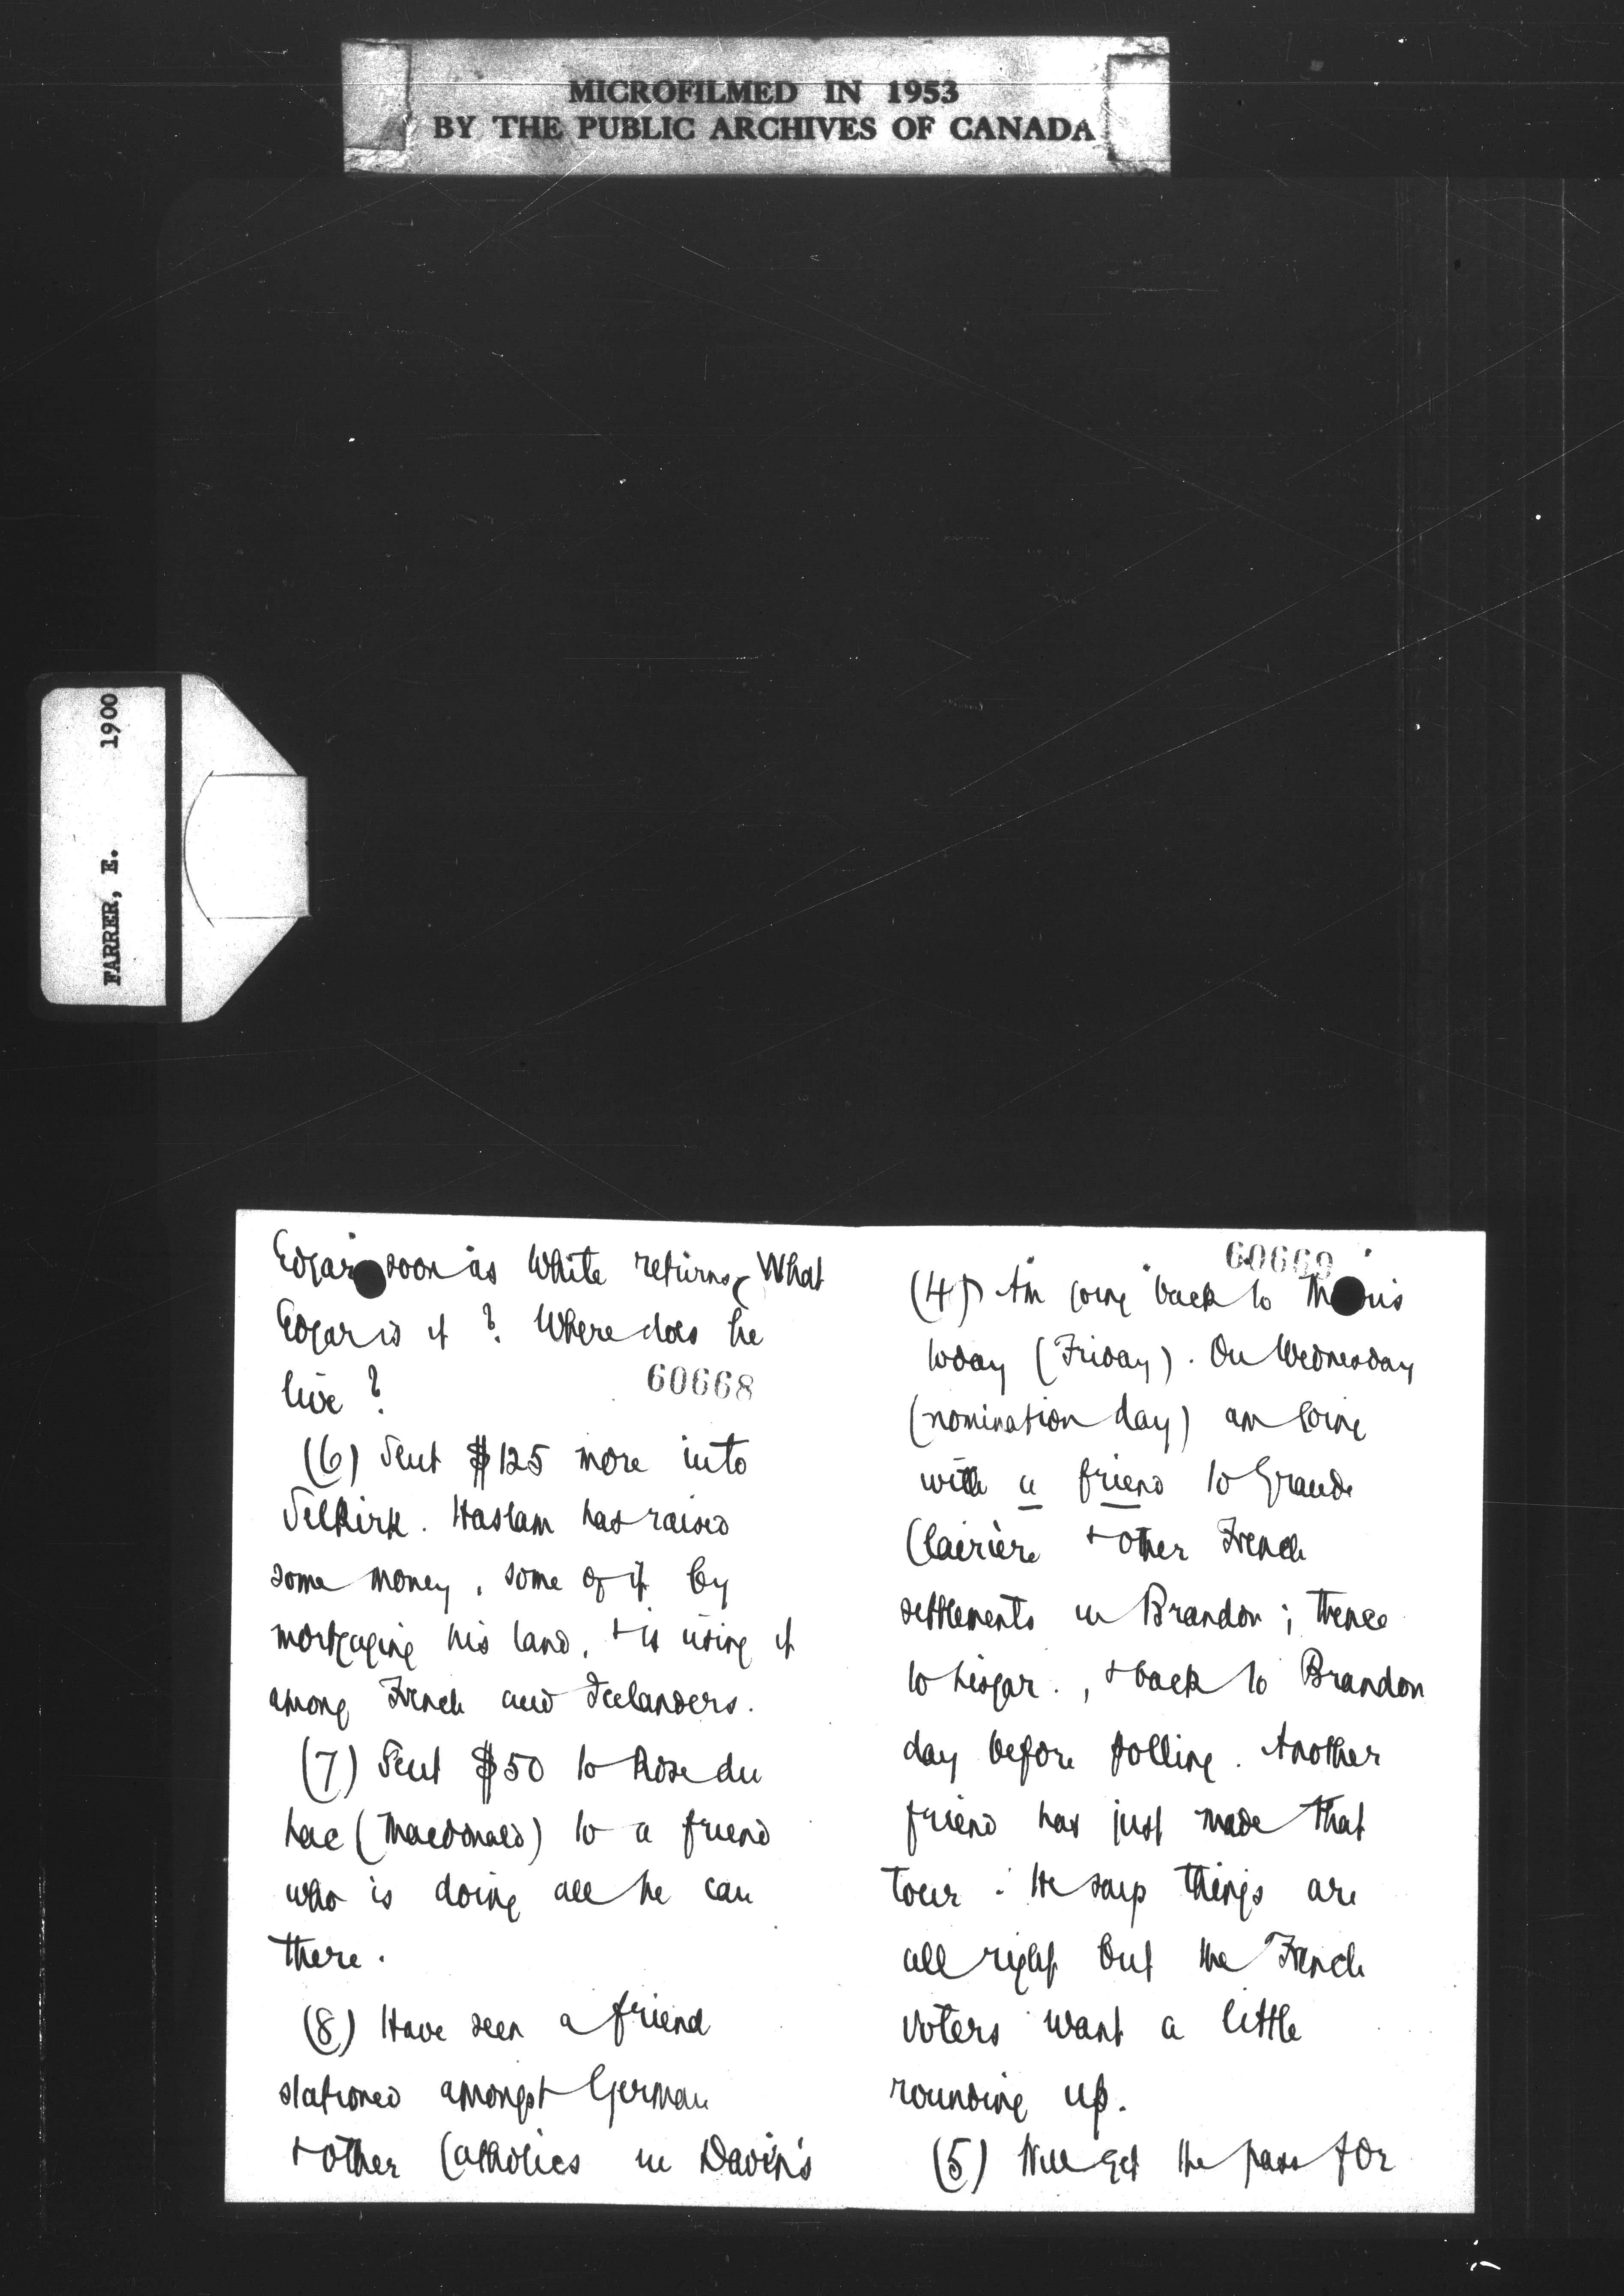 MICROFILMED IN 1953
BY THE PUBLIC ARCHIVES OF CANADA
FARRER, E. 1900
Edgar soon as White returns. What
Edgar is it? Where does he
live?
60668
(6) Sent $125 more into
Selkirk. Haslam has raised
some money, some of it by
mortgaging his land, + is using it
among French and Icelanders.
(7) Sent $50 to Rose du
Lac (Macdonald) to a friend
who is doing all he can
there.
(8) Have seen a friend
stationed amongst German
+ other Catholics in Davin's
60669
(4) Am going back to
today (Friday). On Wednesday
(nomination day) am going
with a friend to Grande
Clairière + other French
settlements in Brandon; thence
to Lisgar., + back to Brandon
day before polling. Another
friend has just made that
tour. He says things are
all right but the French
voters want a little
rounding up.
(5) Will get the pass for